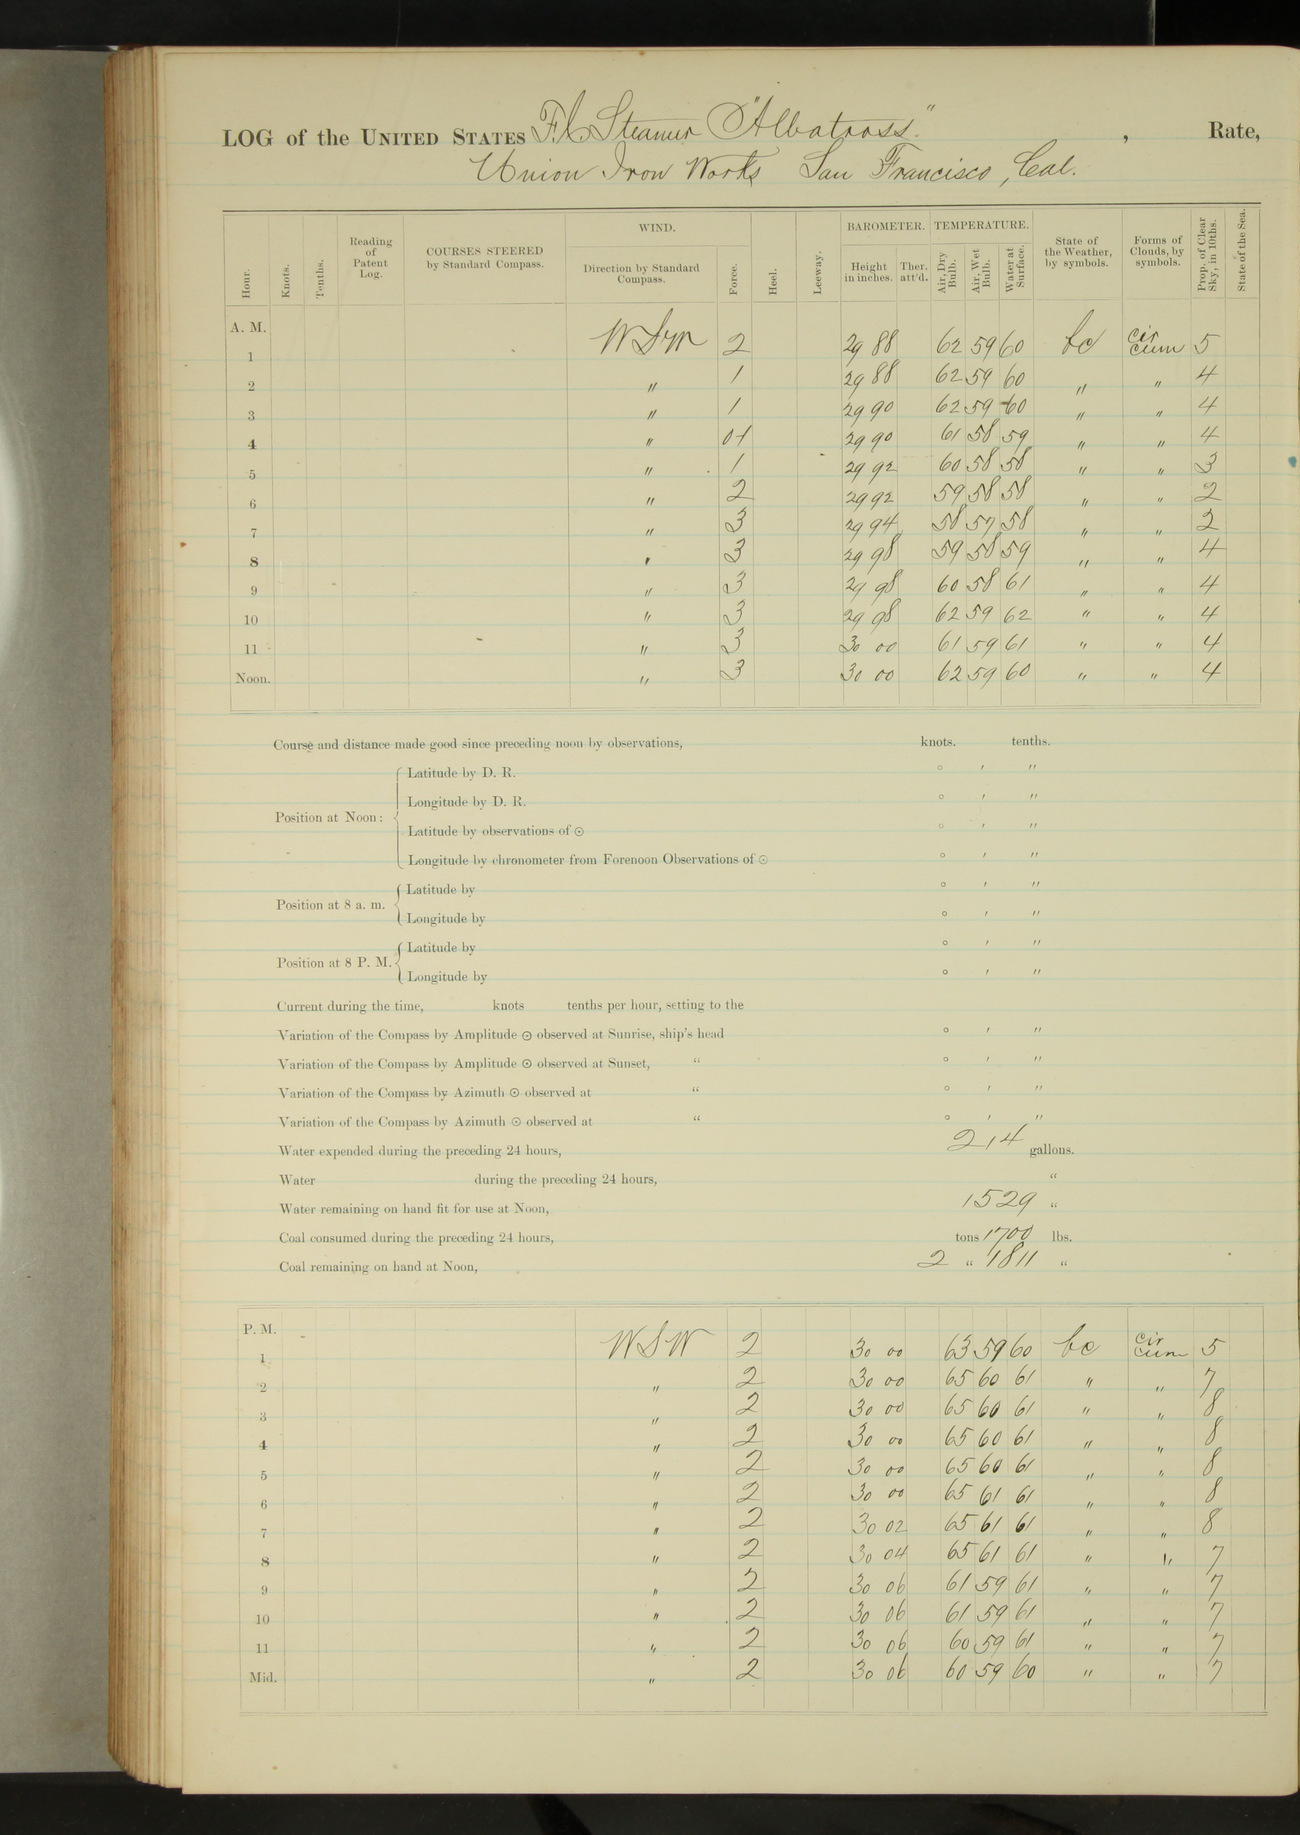 LOG of the UNITED STATES F.C. Steamer "Albatross", Rate,
Union Iron Works San Francisco, Cal.
Hour. Knots. Tenths. Reading of Patent Log. COURSES STEERED by Standard Compass. WIND. Direction by Standard Compass. Force. Heel. Leeway. BAROMETER. Height in inches. Ther. att'd. TEMPERATURE. Air, Dry Bulb. Air, Wet Bulb. Water at Surface. State of the Weather, by symbols. Forms of Clouds, by symbols. Prop. of Clear Sky, in 10ths. State of the Sea.
A. M.
1 WSW 2 29 88 62 59 60 bc Cir Cum 5
2 " 1 29 88 62 59 60 " " 4
3 " 1 29 90 62 59 60 " " 4
4 " 01 29 90 61 58 59 " " 4
5 " 1 29 92 60 58 58 " " 3
6 " 2 29 92 59 58 58 " " 2
7 " 3 29 94 58 57 58 " " 2
8 " 3 29 98 59 58 59 " " 4
9 " 3 29 98 60 58 61 " " 4
10 " 3 29 98 62 59 62 " " 4
11 " 3 30 00 61 59 61 " " 4
Noon. " 3 30 00 62 59 60 " " 4
Course and distance made good since preceding noon by observations, knots. tenths.
Position at Noon:
Latitude by D. R. ° ′ ″
Longitude by D. R. ° ′ ″
Latitude by observations of ⊙ ° ′ ″
Longitude by chronometer from Forenoon Observations of ⊙ ° ′ ″
Position at 8 a. m.
Latitude by ° ′ ″
Longitude by ° ′ ″
Position at 8 P. M.
Latitude by ° ′ ″
Longitude by ° ′ ″
Current during the time, knots tenths per hour, setting to the
Variation of the Compass by Amplitude ⊙ observed at Sunrise, ship's head ° ′ ″
Variation of the Compass by Amplitude ⊙ observed at Sunset, " ° ′ ″
Variation of the Compass by Azimuth ⊙ observed at " ° ′ ″
Variation of the Compass by Azimuth ⊙ observed at " ° ′ ″
Water expended during the preceding 24 hours, 214 gallons.
Water during the preceding 24 hours, "
Water remaining on hand fit for use at Noon, 1529 "
Coal consumed during the preceding 24 hours, tons 1700 lbs.
Coal remaining on hand at Noon, 2 " 1811 "
P. M.
1 WSW 2 30 00 63 59 60 bc Cir Cum 5
2 " 2 30 00 65 60 61 " " 7
3 " 2 30 00 65 60 61 " " 8
4 " 2 30 00 65 60 61 " " 8
5 " 2 30 00 65 60 61 " " 8
6 " 2 30 00 65 61 61 " " 8
7 " 2 30 02 65 61 61 " " 8
8 " 2 30 04 65 61 61 " " 7
9 " 2 30 06 61 59 61 " " 7
10 " 2 30 06 61 59 61 " " 7
11 " 2 30 06 60 59 61 " " 7
Mid. " 2 30 06 60 59 60 " " 7